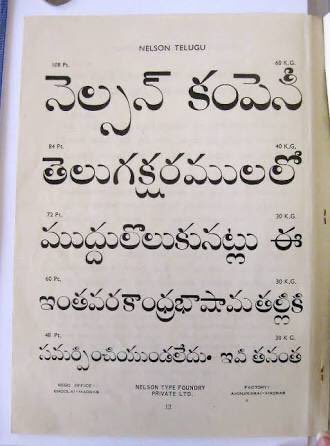 NELSON TELUGU
108 Pt. 60 K.G.
నెల్సన్ కంపెనీ
84 Pt. 40 K.G.
తెలుగక్షరములలో
72 Pt. 30 K.G.
ముద్దులొలుకునట్లు ఈ
60 Pt. 30 K.G.
ఇంతవరకాంధ్రభాషామతల్లికి
48 Pt. 20 K.G.
సమర్పించియుండలేదు. ఇవి తనంత
HEAD OFFICE: NELSON TYPE FOUNDRY FACTORY:
PRIVATE LTD.
13